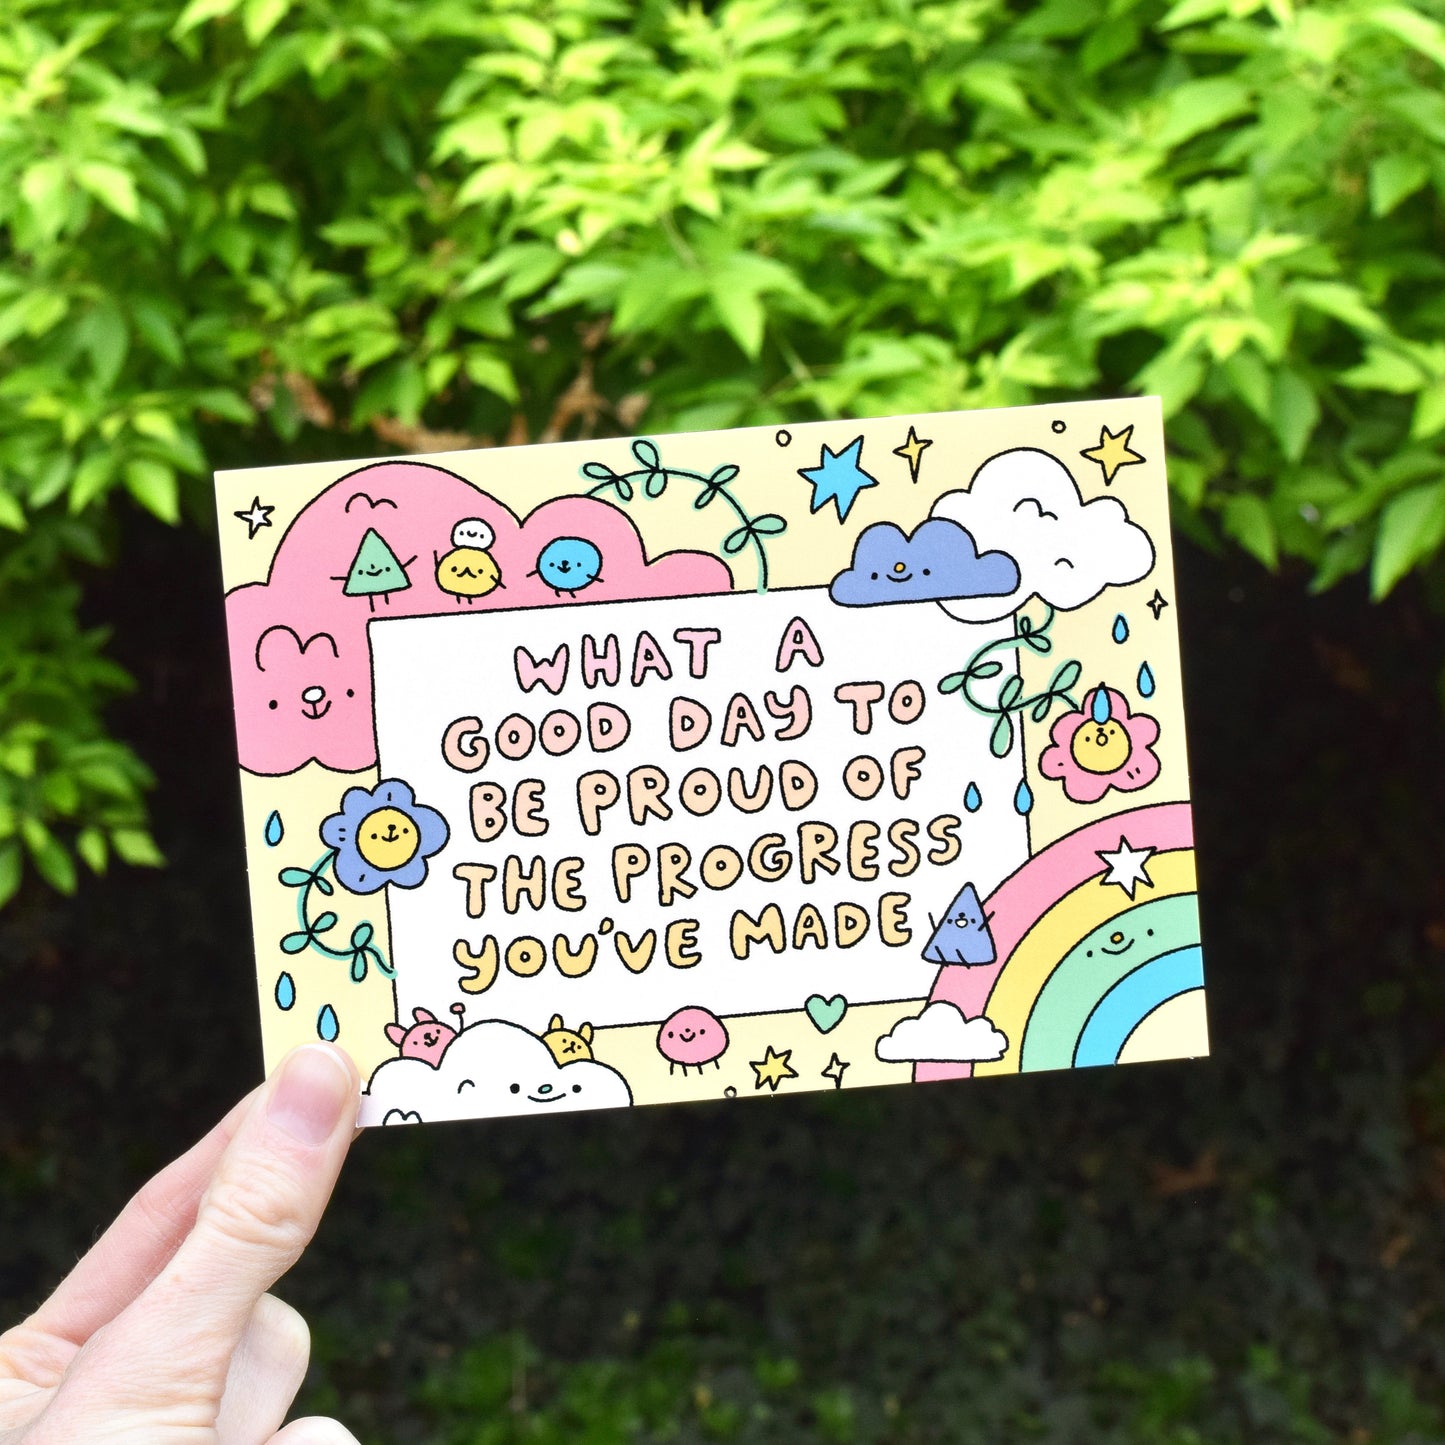 WHAT A
GOOD DAY TO
BE PROUD OF
THE PROGRESS
YOU'VE MADE